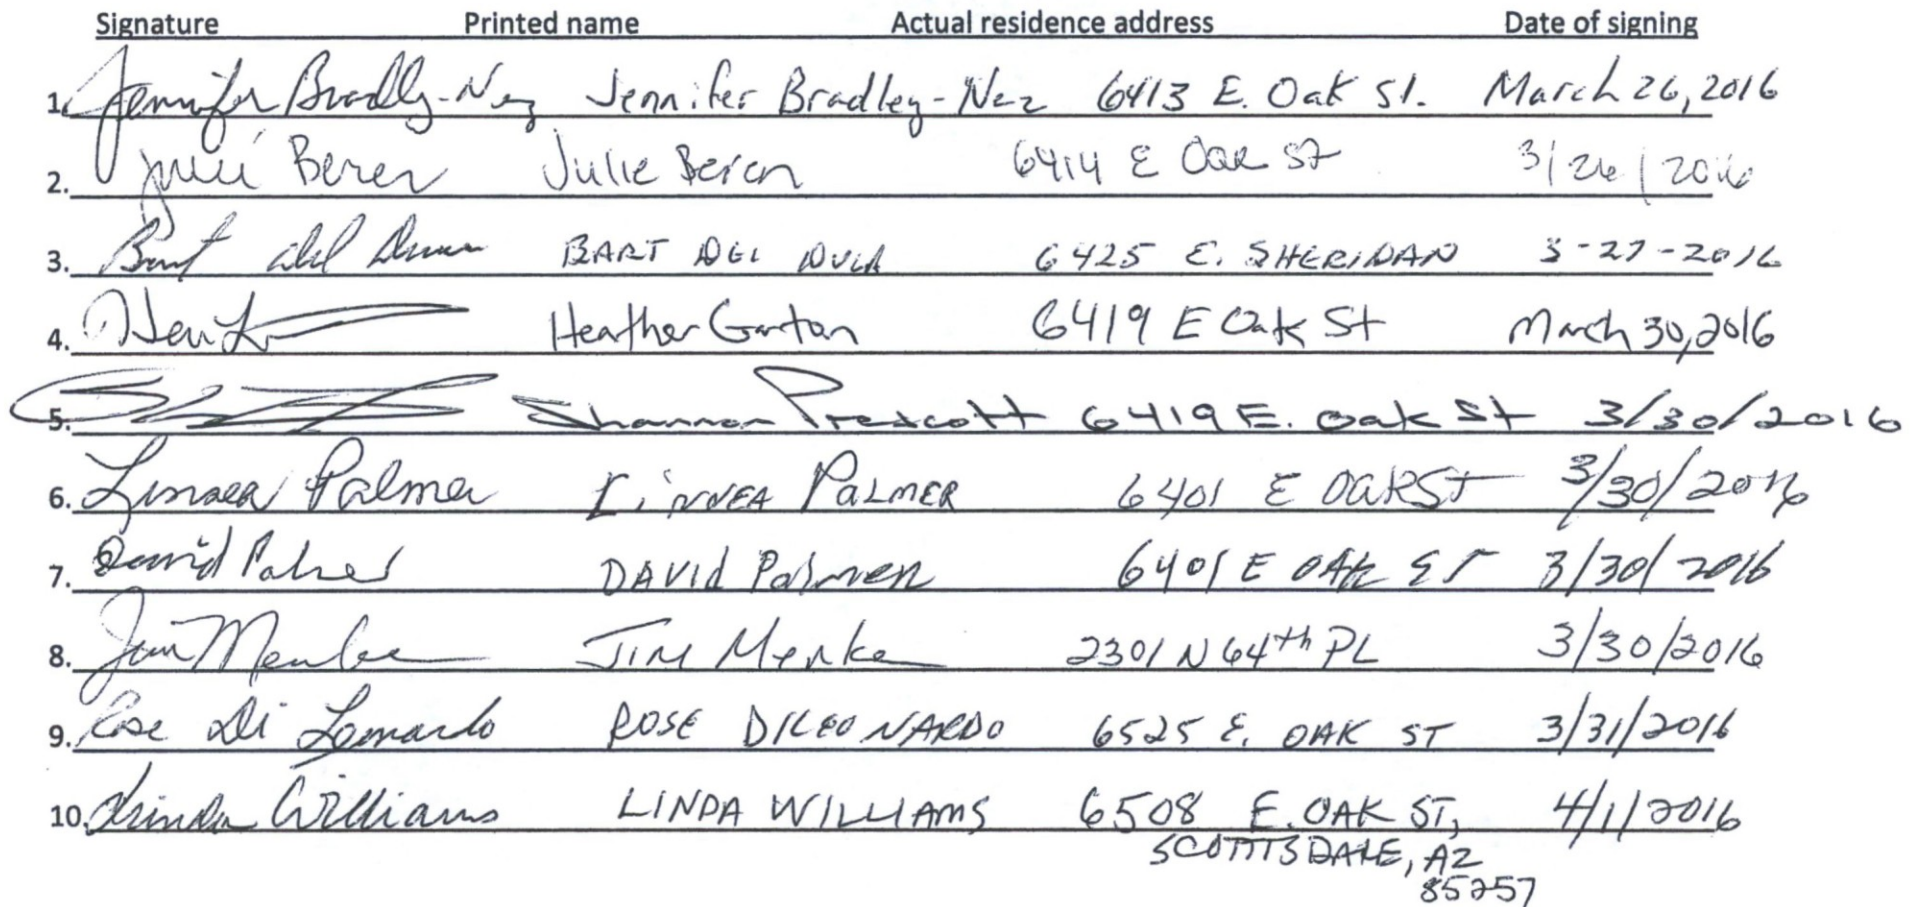 Signature Printed name Actual residence address Date of signing
1. Jennifer Bradley-Nez Jennifer Bradley-Nez 6413 E. Oak St. March 26, 2016
2. Julie Beren Julie Beren 6414 E Oak St 3/26/2016
3. Bart del BART DEL 6425 E. SHERIDAN 3-27-2016
4. Heather Garton 6419 E Oak St March 30, 2016
5. Shannon Prescott 6419 E. Oak St 3/30/2016
6. Linnea Palmer LINNEA PALMER 6401 E OAK ST 3/30/2016
7. David Palmer DAVID Palmer 6401 E OAK ST 3/30/2016
8. Jim Menke JIM Menke 2301 N 64th PL 3/30/2016
9. Rose Di Leonardo ROSE DILEONARDO 6525 E. OAK ST 3/31/2016
10. Linda Williams LINDA WILLIAMS 6508 E. OAK ST,
SCOTTTSDALE, AZ
85257
4/1/2016